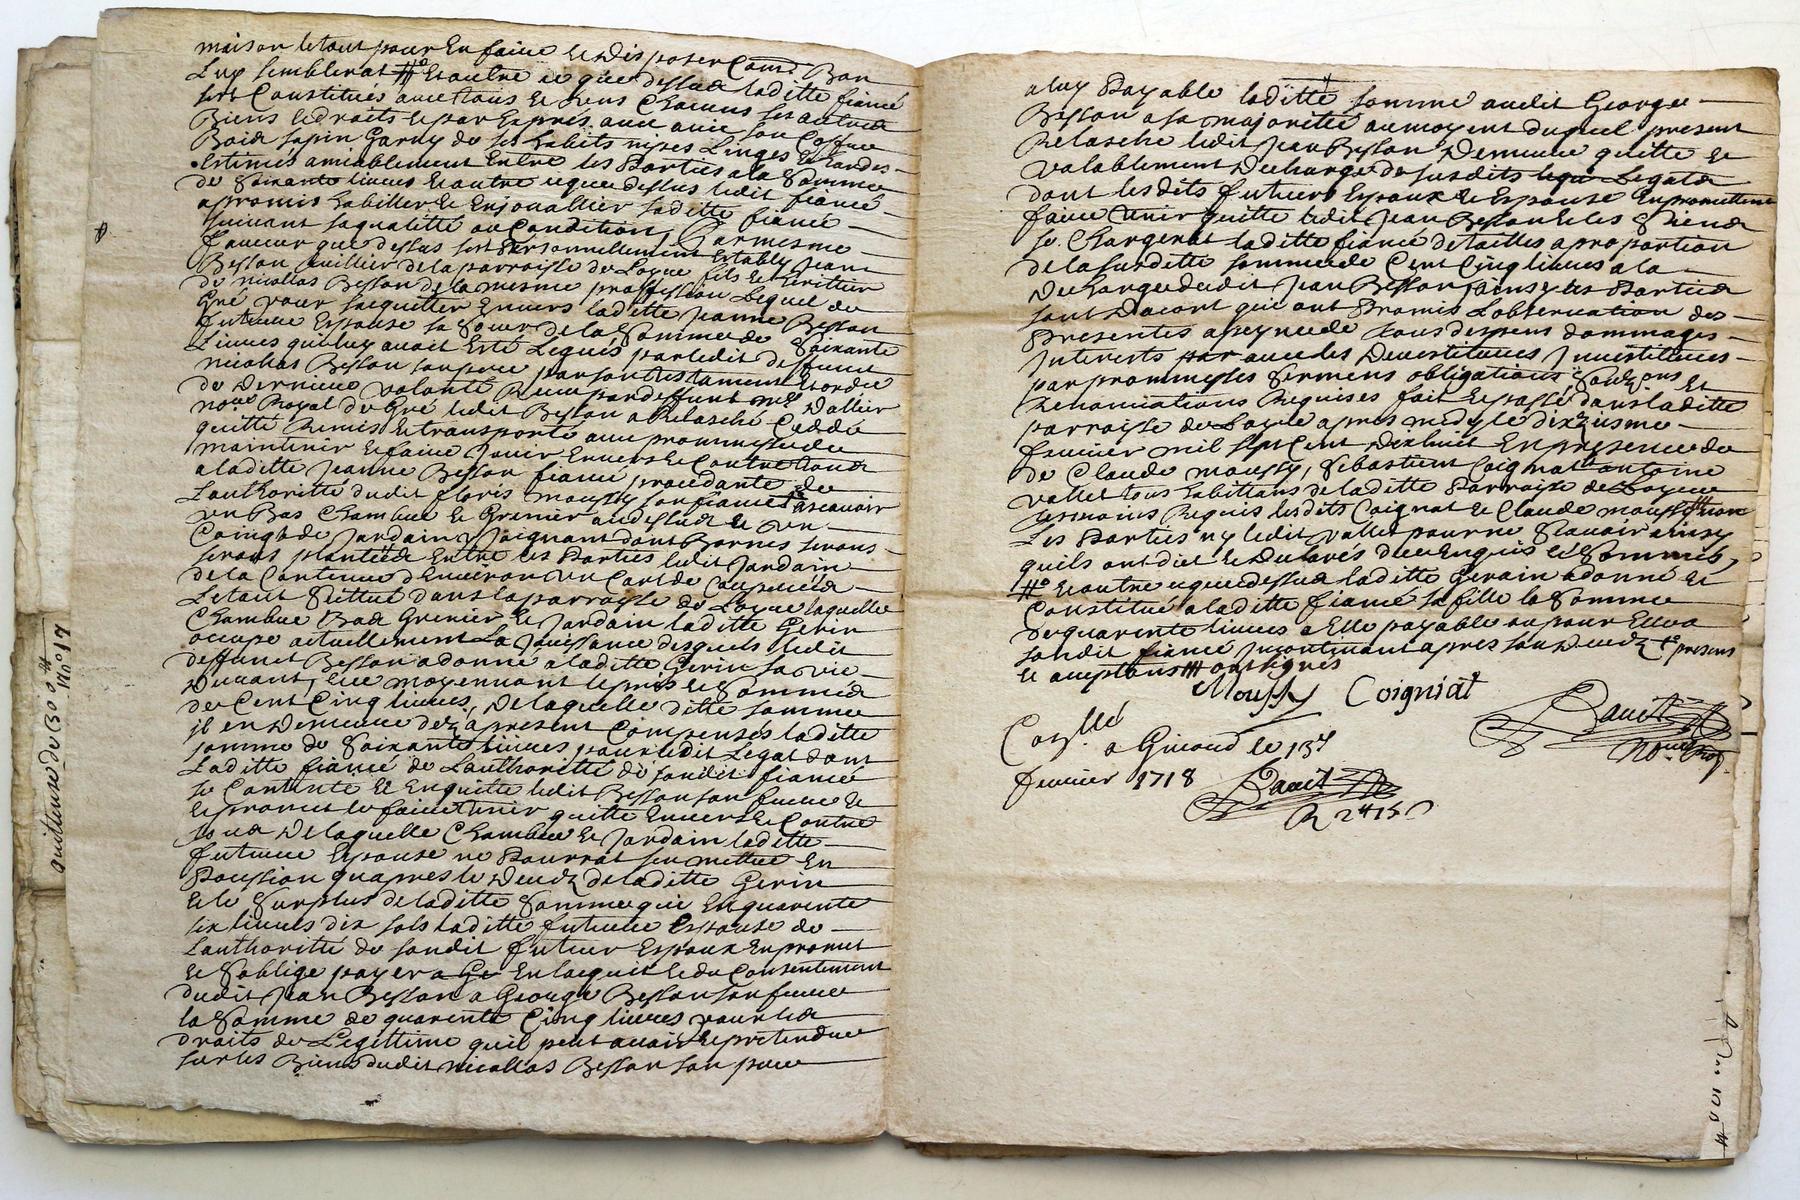 maison le tout pour En faire Et Disposer Comé Bon
Luy semblerat # Et outre ce que dessus laditte fiancé
sest Constitués avec tous Et uns Chacuns ses autres
Biens Et droits Et par Exprés avec avec son Coffre
Bois sapin Garny de ses habits nipes Linges Et hardes
Estimés amiablement Entre les Parties a la Somme
de Soixante livres Et outre ce que dessus ledit fiancé
a promis habiller Et Enjouallier laditte fiancé
suivant sa qualitté ou Condition, Par mesme
faveur que dessus sest Personnellement Estably Jean
Besson de la parroisse de Loyse fils Et heritier
de nicollas Besson de la mesme proffession Lequel de
Gré pour sacquitter Envers laditte Jeanne Besson
future Espouse sa Soeur de la Somme de Soixante
Livres qui luy avoit Esté Legués par ledit deffunt
nicolas Besson son pere par son testament Et ordre
de Derniere volanté Receu par deffunt me Vallier
nore Royal de Gré ledit Besson a Relasché Ceddé
quitté Remis Et transporté avec prommesse de
maintenir Et faire Jouir Envers Et Contre tous
a laditte Jeanne Besson fiancé procedante de
Lauthoritté dudit floris moussy son fiancé ascavoir
un Bas Chambre Et Grenier au dessus Et un
Coing de Jardain Joignant dont Bornes serons
serons plantées Entre les Parties ledit Jardain
de la Contenue d'Environ un Cart de Coupées
Le tout Sittué dans la parroisse de Loyse laquelle
Chambre Bas Grenier Et Jardain laditte Gerin
occupe actuellement La Jouissance desquels ledit
deffunct Besson a donné a laditte Gerin sa vie
Durant, Et ce moyennant le prix Et Somme
de Cent Cinq livres, De laquelle ditte somme
il en Demeure dez a present Compensés laditte
somme de Soixante livres pour ledit Legat dont
Laditte fiancé de Lauthoritté de sondit fiancé
se Contente Et En quitte ledit Besson son frere Et
Et promet len faire tenir quitte Envers Et Contre
tous De laquelle Chambre Et Jardain laditte
future Espouse ne Pourrat sen mettre En
Possession quapres le Decedz de laditte Gerin
Et le Surplus de laditte Somme qui En quarente
six livres dix sols laditte future Espouse de
Lauthoritté de sondit futur Espoux En promet
Et Soblige payer a Ge En lacquit Et du Consentement
dudit Jean Besson a George Besson son frere
la Somme de quarente Cinq livres pour les
Droits de Legittime quil peut avoir Et pretendre
sur les Biens dudit nicollas Besson son pere
quittence du 130
n° 17
a luy Payable laditte somme audit George
Besson a sa majoritté au moyent duquel present
Relasché ledit Jean Besson Demeure quitte Et
valablement Decharge de susdits lega Legats
dont lesdits futurs Espoux Et Espouse En promettent
faire tenir quitte ledit Jean Besson Et les Siens
se Chargerat laditte fiancé de tailles a proportion
de la susditte somme de Cent Cinq livres a la
Decharge dudit Jean Besson, ainsy les Parties
sont Dacort qui ont Promis Lobservation des
Presentes a peyne de tous despens dommages
Interests par avec les Devestitures Investitures
par prommesses Sermens obligations Soubzons Et
Renonciations Requises fait Et passé dans laditte
parroisse de Loyse apres midy le dixieme
fevrier mil sept Cent Dixhuit En presence de
de Claude moussy, Sebastien Coignat antoine
vallet tous habittans de laditte Parroisse de Loyse
tesmoins Requis lesdits Coignat Et Claude moussy non
Les Parties ny ledit vallet pour ne Scavoir ainsy
quils ont dit Et Declarés de ce Enquis Et Sommés,
# Et outre ce que dessus laditte Gerain a donné Et
Constitué a laditte fiancé sa fille la Somme
de quarente livres a Elle payable ou pour Elle a
sondit fiancé Incontinant apres son Decedz presens
Et acceptans ont signés
Moussy Coigniat
Conllé
a Giraud le 13
fevrier 1718